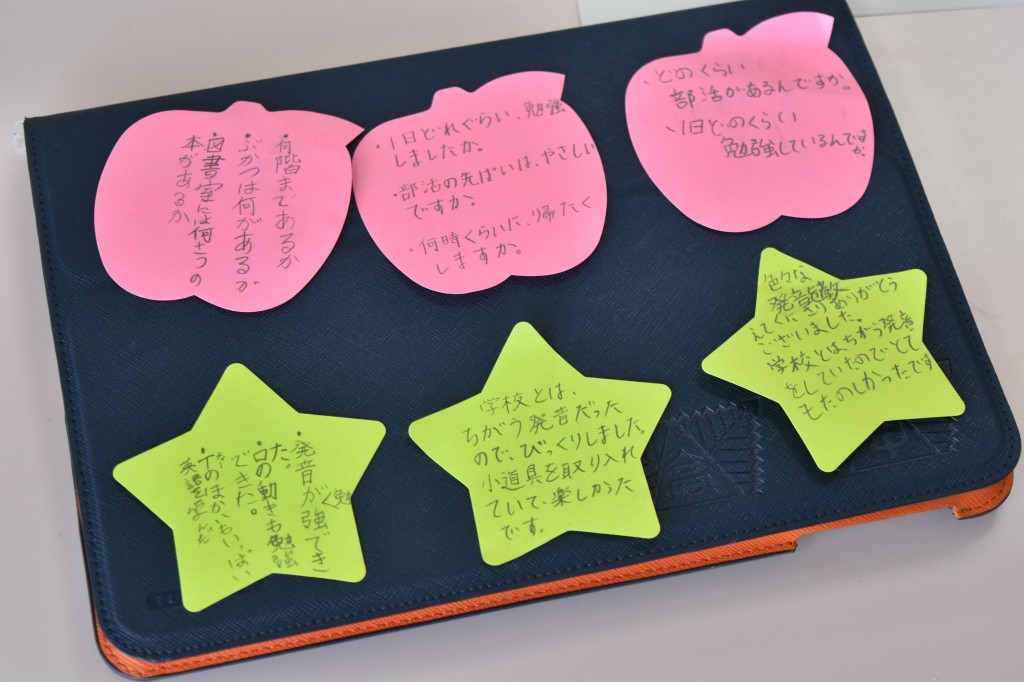 ・何階まであるか
・ぶかつは何があるか
・図書室には何さつの
本があるか
・1日どれぐらい、勉強
しましたか。
・部活の先ぱいは、やさしい
ですか。
・何時くらいに、帰たく
しますか。
、どのくらい
部活があるんですか。
、1日どのくらい
勉強しているんですか
・発音が強でき
く勉
た。
・口の動きも勉強
できた。
のほかもいっぱい
英語を学んだ
学校とは、
ちがう発音だった
ので、びっくりしました。
小道具を取り入れ
ていて、楽しかった
です。
色々な
発音教
えてくださりありがとう
ございました。
学校とは、ちがう発音
をしていたのでとて
もたのしかったです